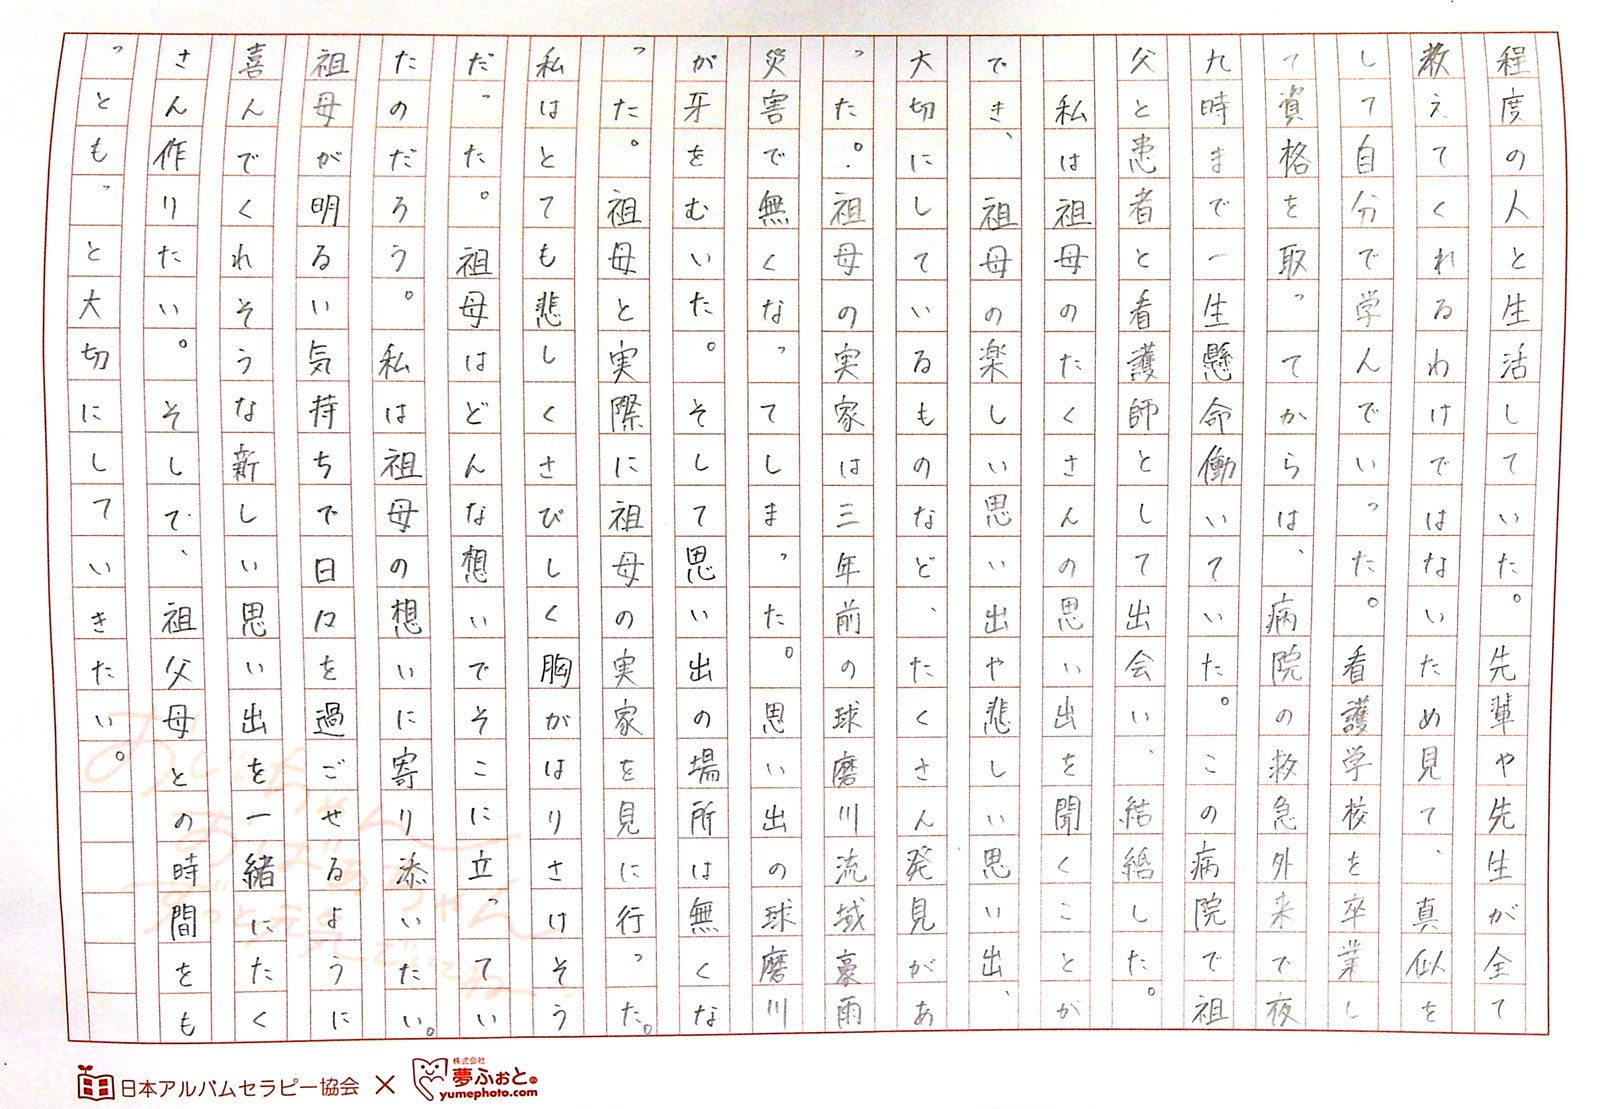 程度の人と生活していた。先輩や先生が全て
教えてくれるわけではないため見て、真似を
して自分で学んでいった。看護学校を卒業し
て資格を取ってからは、病院の救急外来で夜
九時まで一生懸命働いていた。この病院で祖
父と患者と看護師として出会い、結婚した。
私は祖母のたくさんの思い出を聞くことが
でき、祖母の楽しい思い出や悲しい思い出、
大切にしているものなど、たくさん発見があ
った。祖母の実家は三年前の球磨川流域豪雨
災害で無くなってしまった。思い出の球磨川
が牙をむいた。そして思い出の場所は無くな
った。祖母と実際に祖母の実家を見に行った。
私はとても悲しくさびしく胸がはりさけそう
だった。祖母はどんな想いでそこに立ってい
たのだろう。私は祖母の想いに寄り添いたい。
祖母が明るい気持ちで日々を過ごせるように
喜んでくれそうな新しい思い出を一緒にたく
さん作りたい。そして、祖父母との時間をも
っともっと大切にしていきたい。
おじいちゃん
おばあちゃん
ずっと元気でいてね
日本アルバムセラピー協会 × 株式会社 夢ふぉと
yumephoto.com